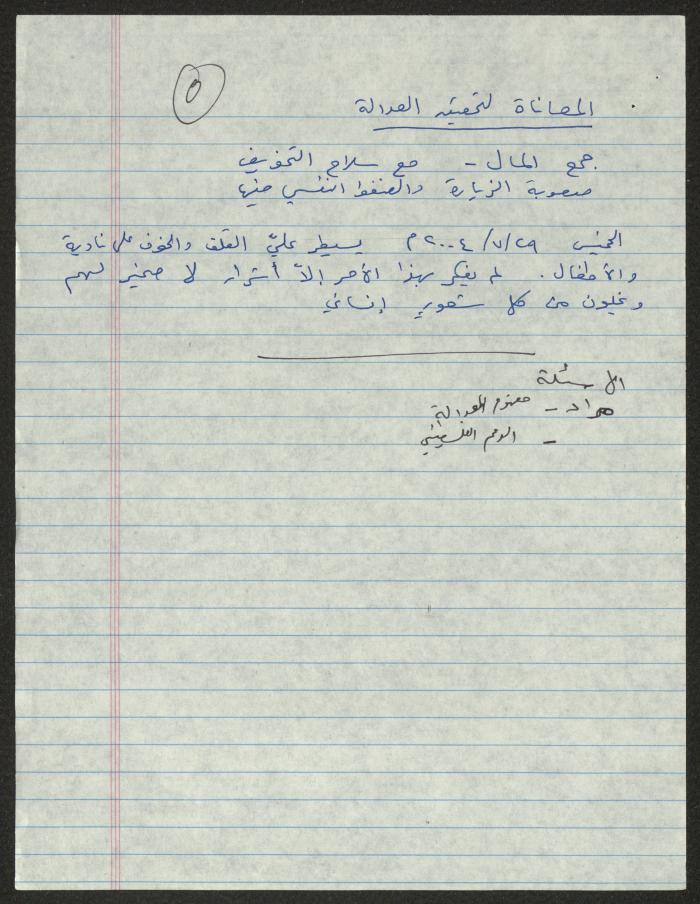 ٥
المعاناة لتحقيق العدالة
جمع المال - مع سلاح التخويف
صعوبة الزيارة والضغط النفسي فيها
الخميس ٢٩/٧/٢٠٠٤م يسيطر عليّ القلق والخوف على نادية
والأطفال. لم يفكر بهذا الأمر إلاّ أشرار لا ضمير لهم
ويخلون من كل شعور إنساني
الأسئلة
مراد - مفهوم العدالة
- الدعم الفلسطيني